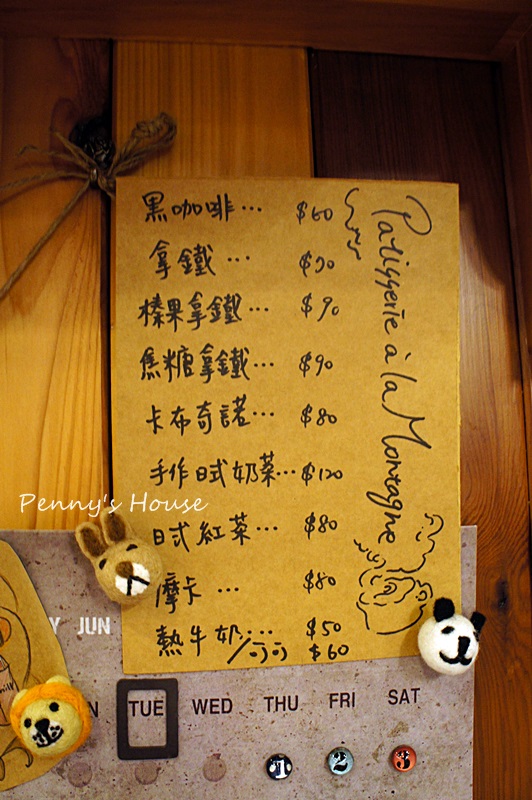 黑咖啡… $60
拿鐵 …
榛果拿鐵… $90
焦糖拿鐵… $90
卡布奇諾… $80
手作日式奶茶… $120
日式紅茶… $80
摩卡 … $80
熱牛奶… $50
/可可 $60
Patisserie à la Montagne
Penny's House
JUN
TUE WED THU FRI SAT
1 2 3